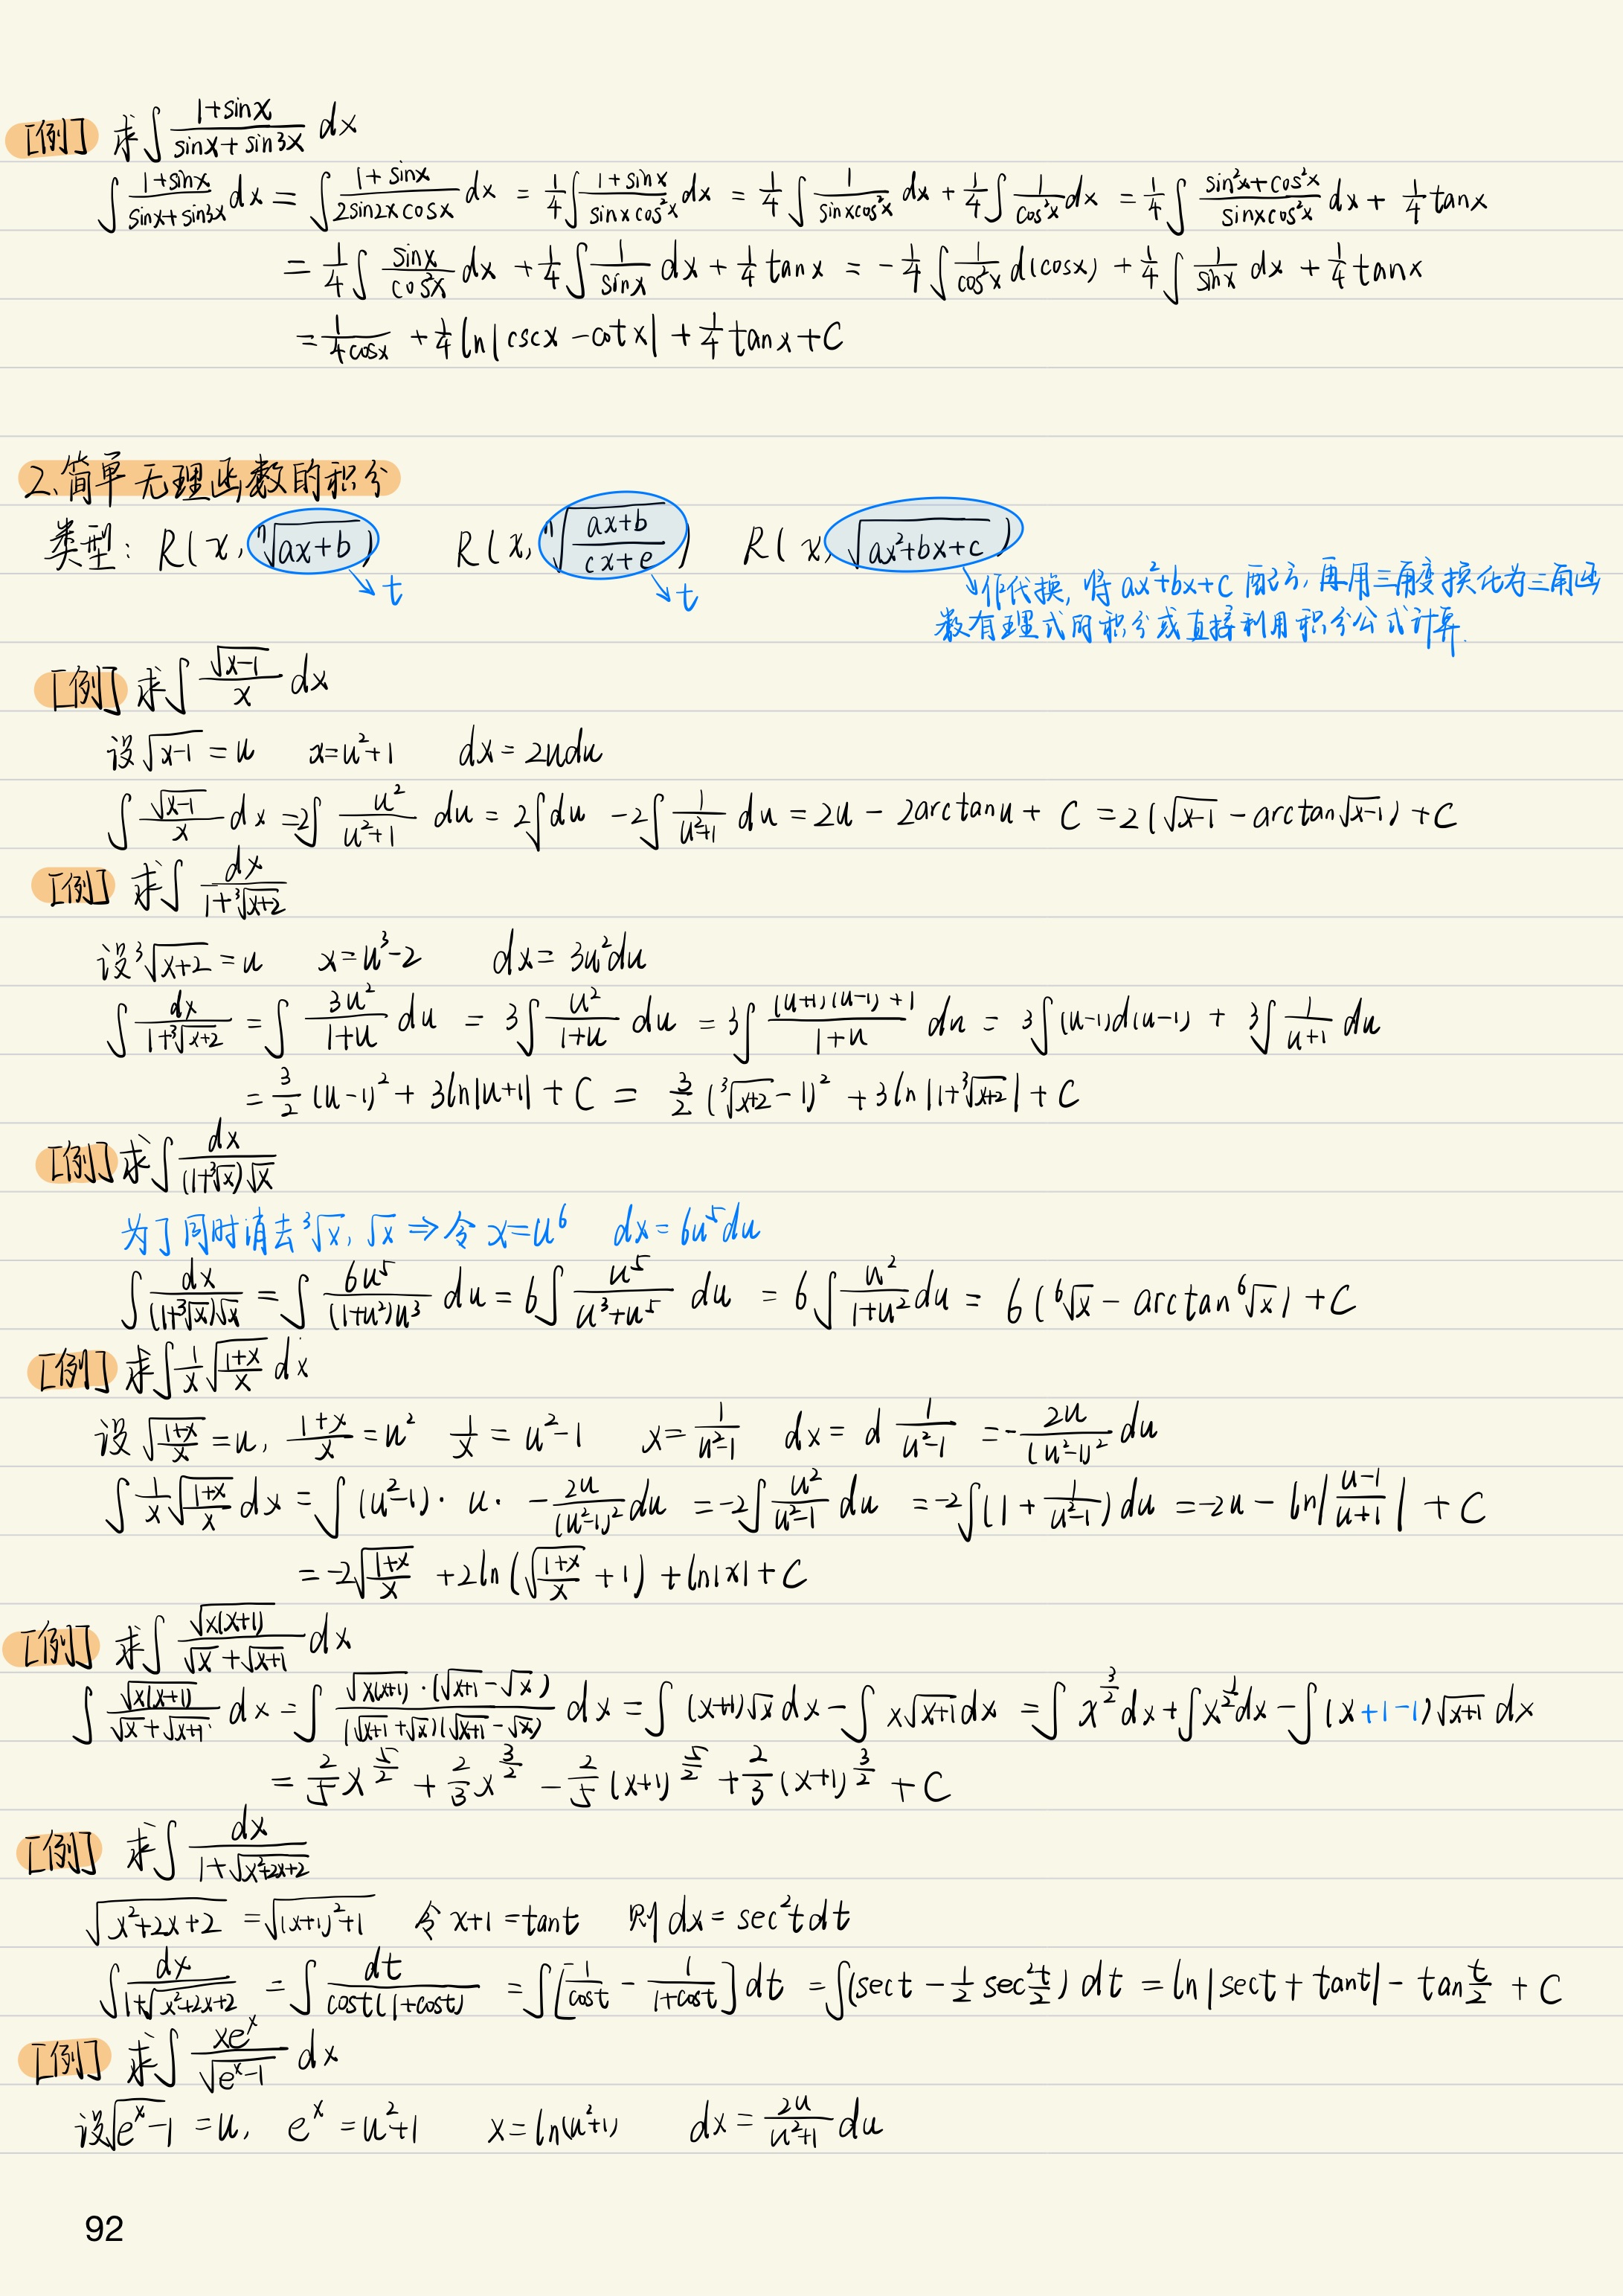 [例] 求∫(1+sinx)/(sinx+sin3x) dx
∫(1+sinx)/(sinx+sin3x) dx = ∫(1+sinx)/(2sin2xcosx) dx = 1/4∫(1+sinx)/(sinxcos²x) dx = 1/4∫1/(sinxcos²x) dx + 1/4∫1/cos²x dx = 1/4∫(sin²x+cos²x)/(sinxcos²x) dx + 1/4 tanx
= 1/4∫sinx/cos²x dx + 1/4∫1/sinx dx + 1/4 tanx = -1/4∫1/cos²x d(cosx) + 1/4∫1/sinx dx + 1/4 tanx
= 1/(4cosx) + 1/4 ln|cscx-cotx| + 1/4 tanx + C
2.简单无理函数的积分
类型: R(x, ⁿ√(ax+b)) R(x, ⁿ√((ax+b)/(cx+e))) R(x, √(ax²+bx+c))
↘t ↘t ↘作代换, 将 ax²+bx+c 配方, 再用三角变换化为三角函
数有理式的积分或直接利用积分公式计算.
[例] 求∫√(x-1)/x dx
设√(x-1)=u x=u²+1 dx=2udu
∫√(x-1)/x dx = 2∫u²/(u²+1) du = 2∫du - 2∫1/(u²+1) du = 2u - 2arctanu + C = 2(√(x-1) - arctan√(x-1)) + C
[例] 求∫dx/(1+³√(x+2))
设³√(x+2)=u x=u³-2 dx=3u²du
∫dx/(1+³√(x+2)) = ∫3u²/(1+u) du = 3∫u²/(1+u) du = 3∫((u+1)(u-1)+1)/(1+u) du = 3∫(u-1)d(u-1) + 3∫1/(u+1) du
= 3/2 (u-1)² + 3ln|u+1| + C = 3/2 (³√(x+2)-1)² + 3ln|1+³√(x+2)| + C
[例] 求∫dx/((1+³√x)√x)
为了同时消去³√x, √x ⇒ 令 x=u⁶ dx=6u⁵du
∫dx/((1+³√x)√x) = ∫6u⁵/((1+u²)u³) du = 6∫u⁵/(u³+u⁵) du = 6∫u²/(1+u²) du = 6(⁶√x - arctan⁶√x) + C
[例] 求∫1/x √((1+x)/x) dx
设 √((1+x)/x)=u, (1+x)/x=u² 1/x=u²-1 x=1/(u²-1) dx = d 1/(u²-1) = -2u/(u²-1)² du
∫1/x √((1+x)/x) dx = ∫(u²-1)· u· -2u/(u²-1)² du = -2∫u²/(u²-1) du = -2∫(1+1/(u²-1)) du = -2u - ln|(u-1)/(u+1)| + C
= -2√((1+x)/x) + 2ln(√((1+x)/x)+1) + ln|x| + C
[例] 求∫√(x(x+1))/(√x+√(x+1)) dx
∫√(x(x+1))/(√x+√(x+1)) dx = ∫(√(x(x+1))·(√(x+1)-√x))/((√(x+1)+√x)(√(x+1)-√x)) dx = ∫(x+1)√x dx - ∫x√(x+1) dx = ∫x^(3/2) dx + ∫x^(1/2) dx - ∫(x+1-1)√(x+1) dx
= 2/5 x^(5/2) + 2/3 x^(3/2) - 2/5 (x+1)^(5/2) + 2/3 (x+1)^(3/2) + C
[例] 求∫dx/(1+√(x²+2x+2))
√(x²+2x+2) = √((x+1)²+1) 令 x+1=tant 则 dx=sec²tdt
∫dx/(1+√(x²+2x+2)) = ∫dt/(cost(1+cost)) = ∫[1/cost - 1/(1+cost)] dt = ∫(sect - 1/2 sec² t/2) dt = ln|sect+tant| - tan t/2 + C
[例] 求∫xeˣ/√(eˣ-1) dx
设√(eˣ-1)=u, eˣ=u²+1 x=ln(u²+1) dx=2u/(u²+1) du
92